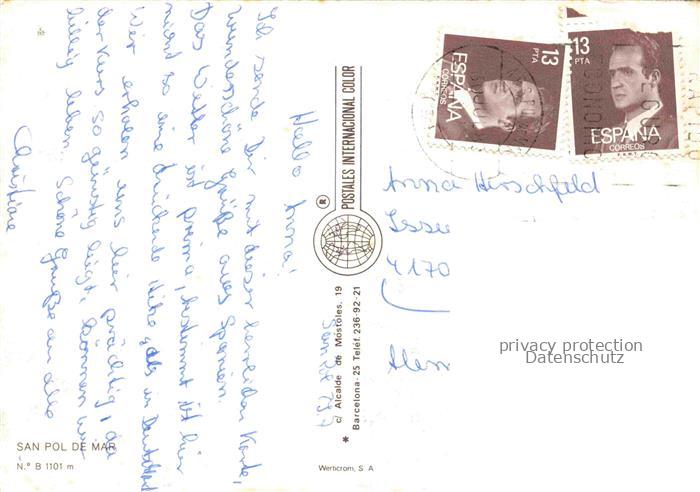 Hallo Anna!
Ich sende Dir mit dieser herrlichen Karte,
wunderschöne Grüße aus Spanien.
Das Wetter ist prima, bestimmt ist hier
nicht so eine drückende Hitze, als in Deutschland
Wir erholen uns hier prächtig, da
der Kurs so günstig liegt, können wir
billig leben. Schöne Grüße an alle
Christiane
SAN POL DE MAR
N.º B 1101 m
POSTALES INTERNACIONAL COLOR
®
c/ Alcalde de Móstoles, 19
Barcelona - 25 Teléf. 236-92-21
Werticrom, S. A.
13 PTA
ESPAÑA
CORREOS
13
PTA
ESPAÑA
CORREOS
F.N.M.T.
Anna Hirschfeld
4170
privacy protection
Datenschutz